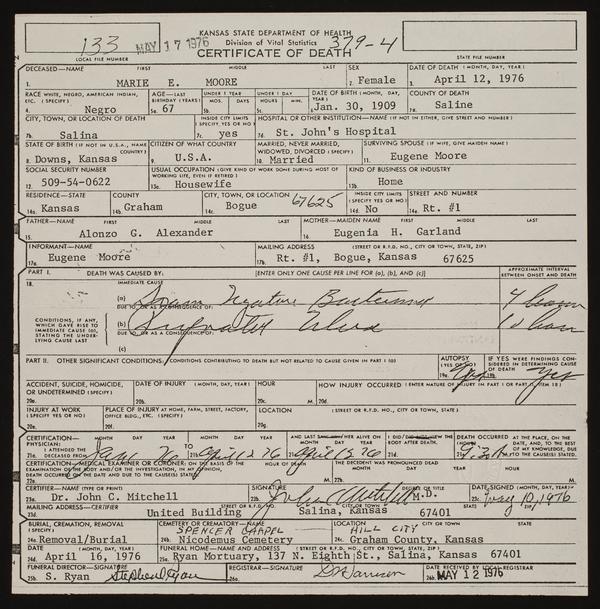 KANSAS STATE DEPARTMENT OF HEALTH
Division of Vital Statistics
CERTIFICATE OF DEATH
133 MAY 17 1976 379-4
LOCAL FILE NUMBER STATE FILE NUMBER
DECEASED—NAME FIRST MIDDLE LAST SEX DATE OF DEATH (MONTH, DAY, YEAR)
1. MARIE E. MOORE 2. Female 3. April 12, 1976
RACE WHITE, NEGRO, AMERICAN INDIAN, ETC. (SPECIFY) AGE—LAST BIRTHDAY (YEARS) UNDER 1 YEAR MOS. DAYS UNDER 1 DAY HOURS MIN. DATE OF BIRTH (MONTH, DAY, YEAR) COUNTY OF DEATH
4. Negro 5a. 67 5b. 5c. 6. Jan. 30, 1909 7a. Saline
CITY, TOWN, OR LOCATION OF DEATH INSIDE CITY LIMITS (SPECIFY YES OR NO) HOSPITAL OR OTHER INSTITUTION—NAME (IF NOT IN EITHER, GIVE STREET AND NUMBER)
7b. Salina 7c. yes 7d. St. John's Hospital
STATE OF BIRTH (IF NOT IN U.S.A., NAME COUNTRY) CITIZEN OF WHAT COUNTRY MARRIED, NEVER MARRIED, WIDOWED, DIVORCED (SPECIFY) SURVIVING SPOUSE (IF WIFE, GIVE MAIDEN NAME)
8. Downs, Kansas 9. U.S.A. 10. Married 11. Eugene Moore
SOCIAL SECURITY NUMBER USUAL OCCUPATION (GIVE KIND OF WORK DONE DURING MOST OF WORKING LIFE, EVEN IF RETIRED) KIND OF BUSINESS OR INDUSTRY
12. 509-54-0622 13a. Housewife 13b. Home
RESIDENCE—STATE COUNTY CITY, TOWN, OR LOCATION INSIDE CITY LIMITS (SPECIFY YES OR NO) STREET AND NUMBER
14a. Kansas 14b. Graham 14c. Bogue 67625 14d. No 14e. Rt. #1
FATHER—NAME FIRST MIDDLE LAST MOTHER—MAIDEN NAME FIRST MIDDLE LAST
15. Alonzo G. Alexander 16. Eugenia H. Garland
INFORMANT—NAME MAILING ADDRESS (STREET OR R.F.D. NO., CITY OR TOWN, STATE, ZIP)
17a. Eugene Moore 17b. Rt. #1, Bogue, Kansas 67625
PART I. DEATH WAS CAUSED BY: [ENTER ONLY ONE CAUSE PER LINE FOR (a), (b), AND (c)] APPROXIMATE INTERVAL BETWEEN ONSET AND DEATH
18. IMMEDIATE CAUSE
(a) Gram Negative
DUE TO, OR AS A CONSEQUENCE OF:
CONDITIONS, IF ANY, WHICH GAVE RISE TO IMMEDIATE CAUSE (a), STATING THE UNDERLYING CAUSE LAST
(b)
DUE TO, OR AS A CONSEQUENCE OF:
(c)
PART II. OTHER SIGNIFICANT CONDITIONS: CONDITIONS CONTRIBUTING TO DEATH BUT NOT RELATED TO CAUSE GIVEN IN PART I (a) AUTOPSY (YES OR NO) IF YES WERE FINDINGS CONSIDERED IN DETERMINING CAUSE OF DEATH
19a. Yes 19b. Yes
ACCIDENT, SUICIDE, HOMICIDE, OR UNDETERMINED (SPECIFY) DATE OF INJURY (MONTH, DAY, YEAR) HOUR HOW INJURY OCCURRED (ENTER NATURE OF INJURY IN PART I OR PART II, ITEM 18)
20a. 20b. 20c. M. 20d.
INJURY AT WORK (SPECIFY YES OR NO) PLACE OF INJURY AT HOME, FARM, STREET, FACTORY, OFFICE BLDG., ETC. (SPECIFY) LOCATION (STREET OR R.F.D. NO., CITY OR TOWN, STATE)
20e. 20f. 20g.
CERTIFICATION— MONTH DAY YEAR MONTH DAY YEAR AND LAST SAW HIM/HER ALIVE ON MONTH DAY YEAR I DID/DID NOT VIEW THE BODY AFTER DEATH. DEATH OCCURRED AT THE PLACE, ON THE DATE, AND, TO THE BEST OF MY KNOWLEDGE, DUE TO THE CAUSE(S) STATED.
PHYSICIAN: I ATTENDED THE DECEASED FROM
21a. 21b. April 12 76 21c. April 12 76 21d. 21e. M.
CERTIFICATION—MEDICAL EXAMINER OR CORONER: ON THE BASIS OF THE EXAMINATION OF THE BODY AND/OR THE INVESTIGATION, IN MY OPINION, DEATH OCCURRED ON THE DATE AND DUE TO THE CAUSE(S) STATED. HOUR OF DEATH THE DECEDENT WAS PRONOUNCED DEAD MONTH DAY YEAR HOUR
22a. M. 22b. M.
CERTIFIER—NAME (TYPE OR PRINT) SIGNATURE DEGREE OR TITLE DATE SIGNED (MONTH, DAY, YEAR)
23a. Dr. John C. Mitchell 23b. M.D. 23c. May 10, 1976
MAILING ADDRESS—CERTIFIER STREET OR R.F.D. NO. CITY OR TOWN STATE ZIP
23d. United Building Salina, Kansas 67401
BURIAL, CREMATION, REMOVAL (SPECIFY) CEMETERY OR CREMATORY—NAME SPENCER CHAPEL LOCATION HILL CITY (CITY OR TOWN, STATE)
24a. Removal/Burial 24b. Nicodemus Cemetery 24c. Graham County, Kansas
DATE (MONTH, DAY, YEAR) FUNERAL HOME—NAME AND ADDRESS (STREET OR R.F.D. NO., CITY OR TOWN, STATE, ZIP)
24d. April 16, 1976 25a. Ryan Mortuary, 137 N. Eighth St., Salina, Kansas 67401
FUNERAL DIRECTOR—SIGNATURE REGISTRAR—SIGNATURE DATE RECEIVED BY LOCAL REGISTRAR
25b. S. Ryan Stephen Ryan 26a. 26b. MAY 12 1976